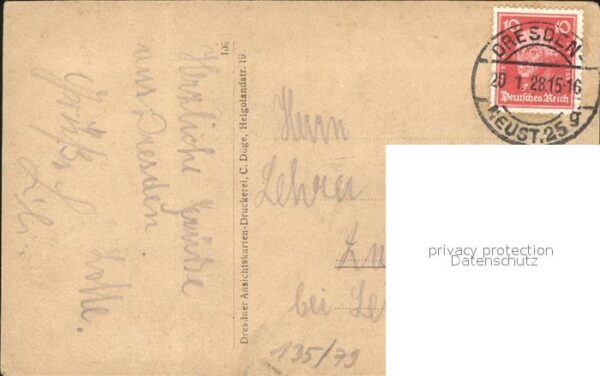 Herzliche Grüße
aus Dresden
Lotte.
Dresdner Ansichtskarten-Druckerei, C. Döge, Helgolandstr. 19
10 10
Deutsches Reich
DRESDEN-
20 1. 28 15-16
NEUST. 25 g
Herrn
Lehrer
bei
135/79
privacy protection
Datenschutz